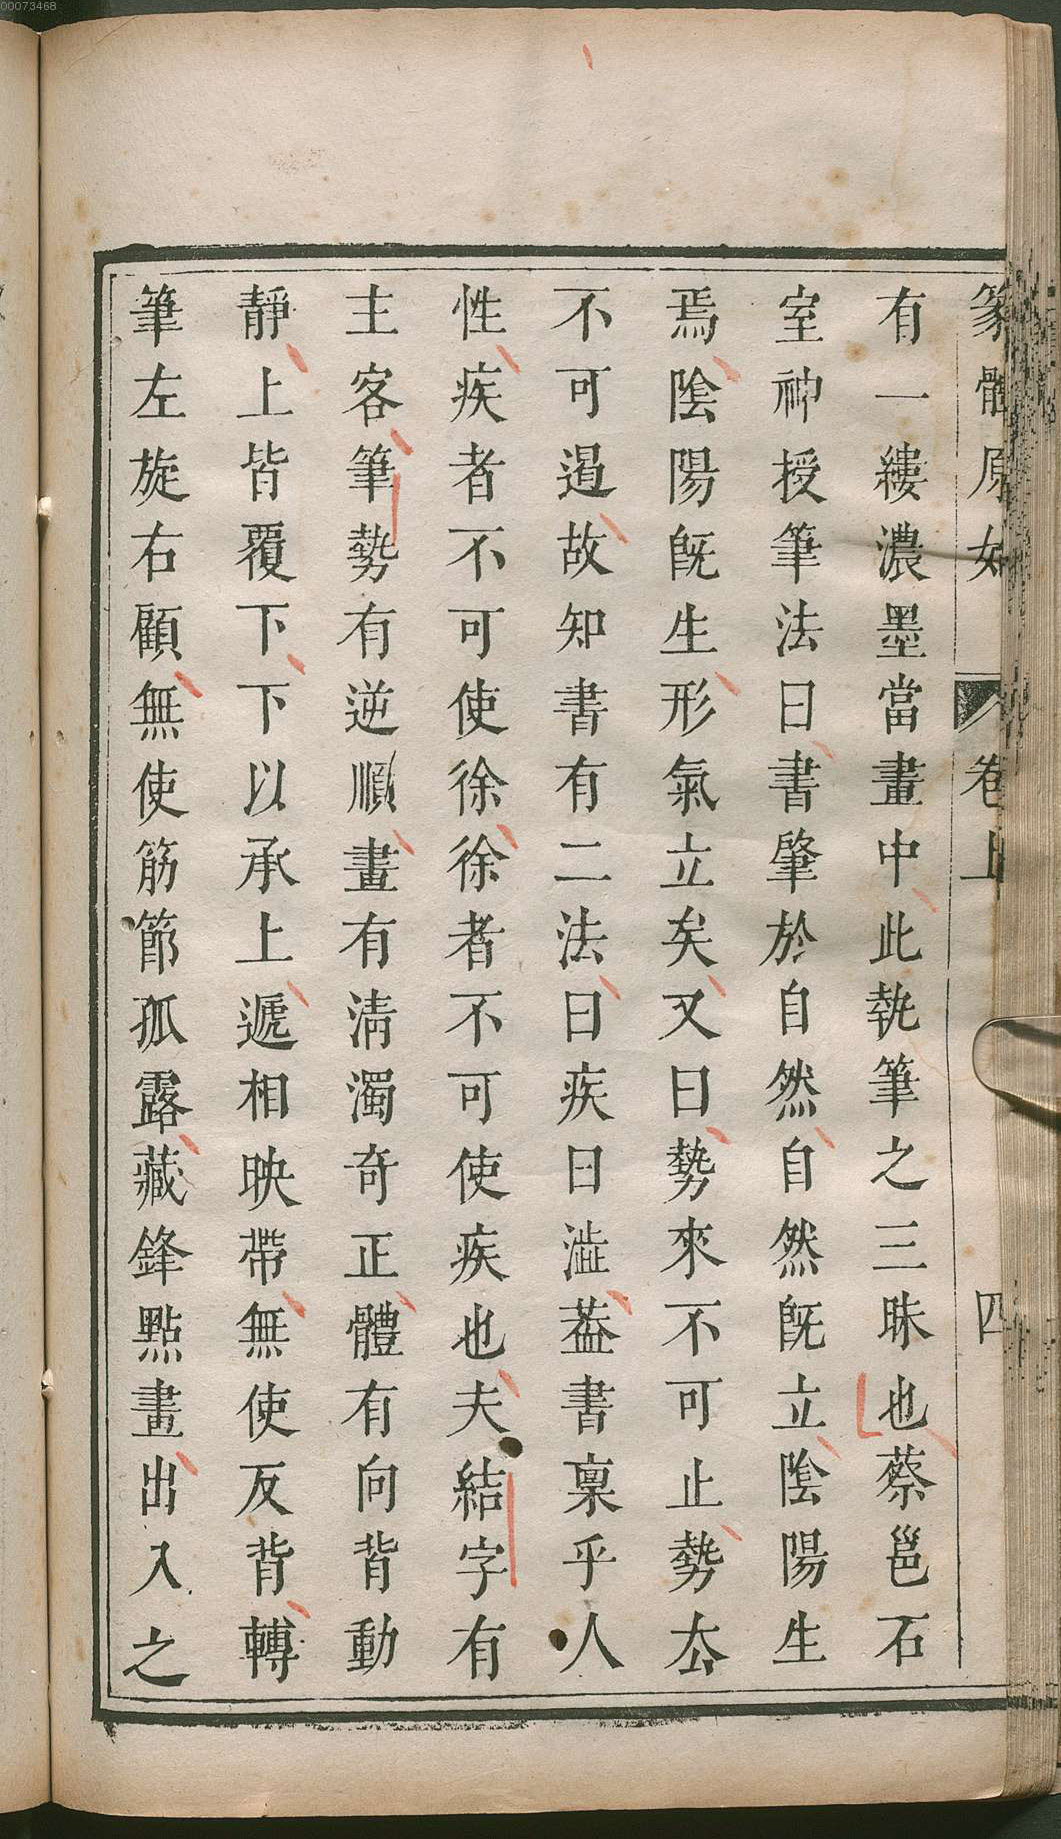 00073468
篆體原始 卷上 四
有一縷濃墨當畫中此執筆之三昧也蔡邕石
室神授筆法曰書肇於自然自然既立陰陽生
焉陰陽既生形氣立矣又曰勢來不可止勢厺
不可遏故知書有二法曰疾曰澁葢書稟乎人
性疾者不可使徐徐者不可使疾也夫結字有
主客筆勢有逆順畫有清濁奇正體有向背動
靜上皆覆下下以承上遞相映帶無使反背轉
筆左旋右顧無使筋節孤露藏鋒點畫出入之